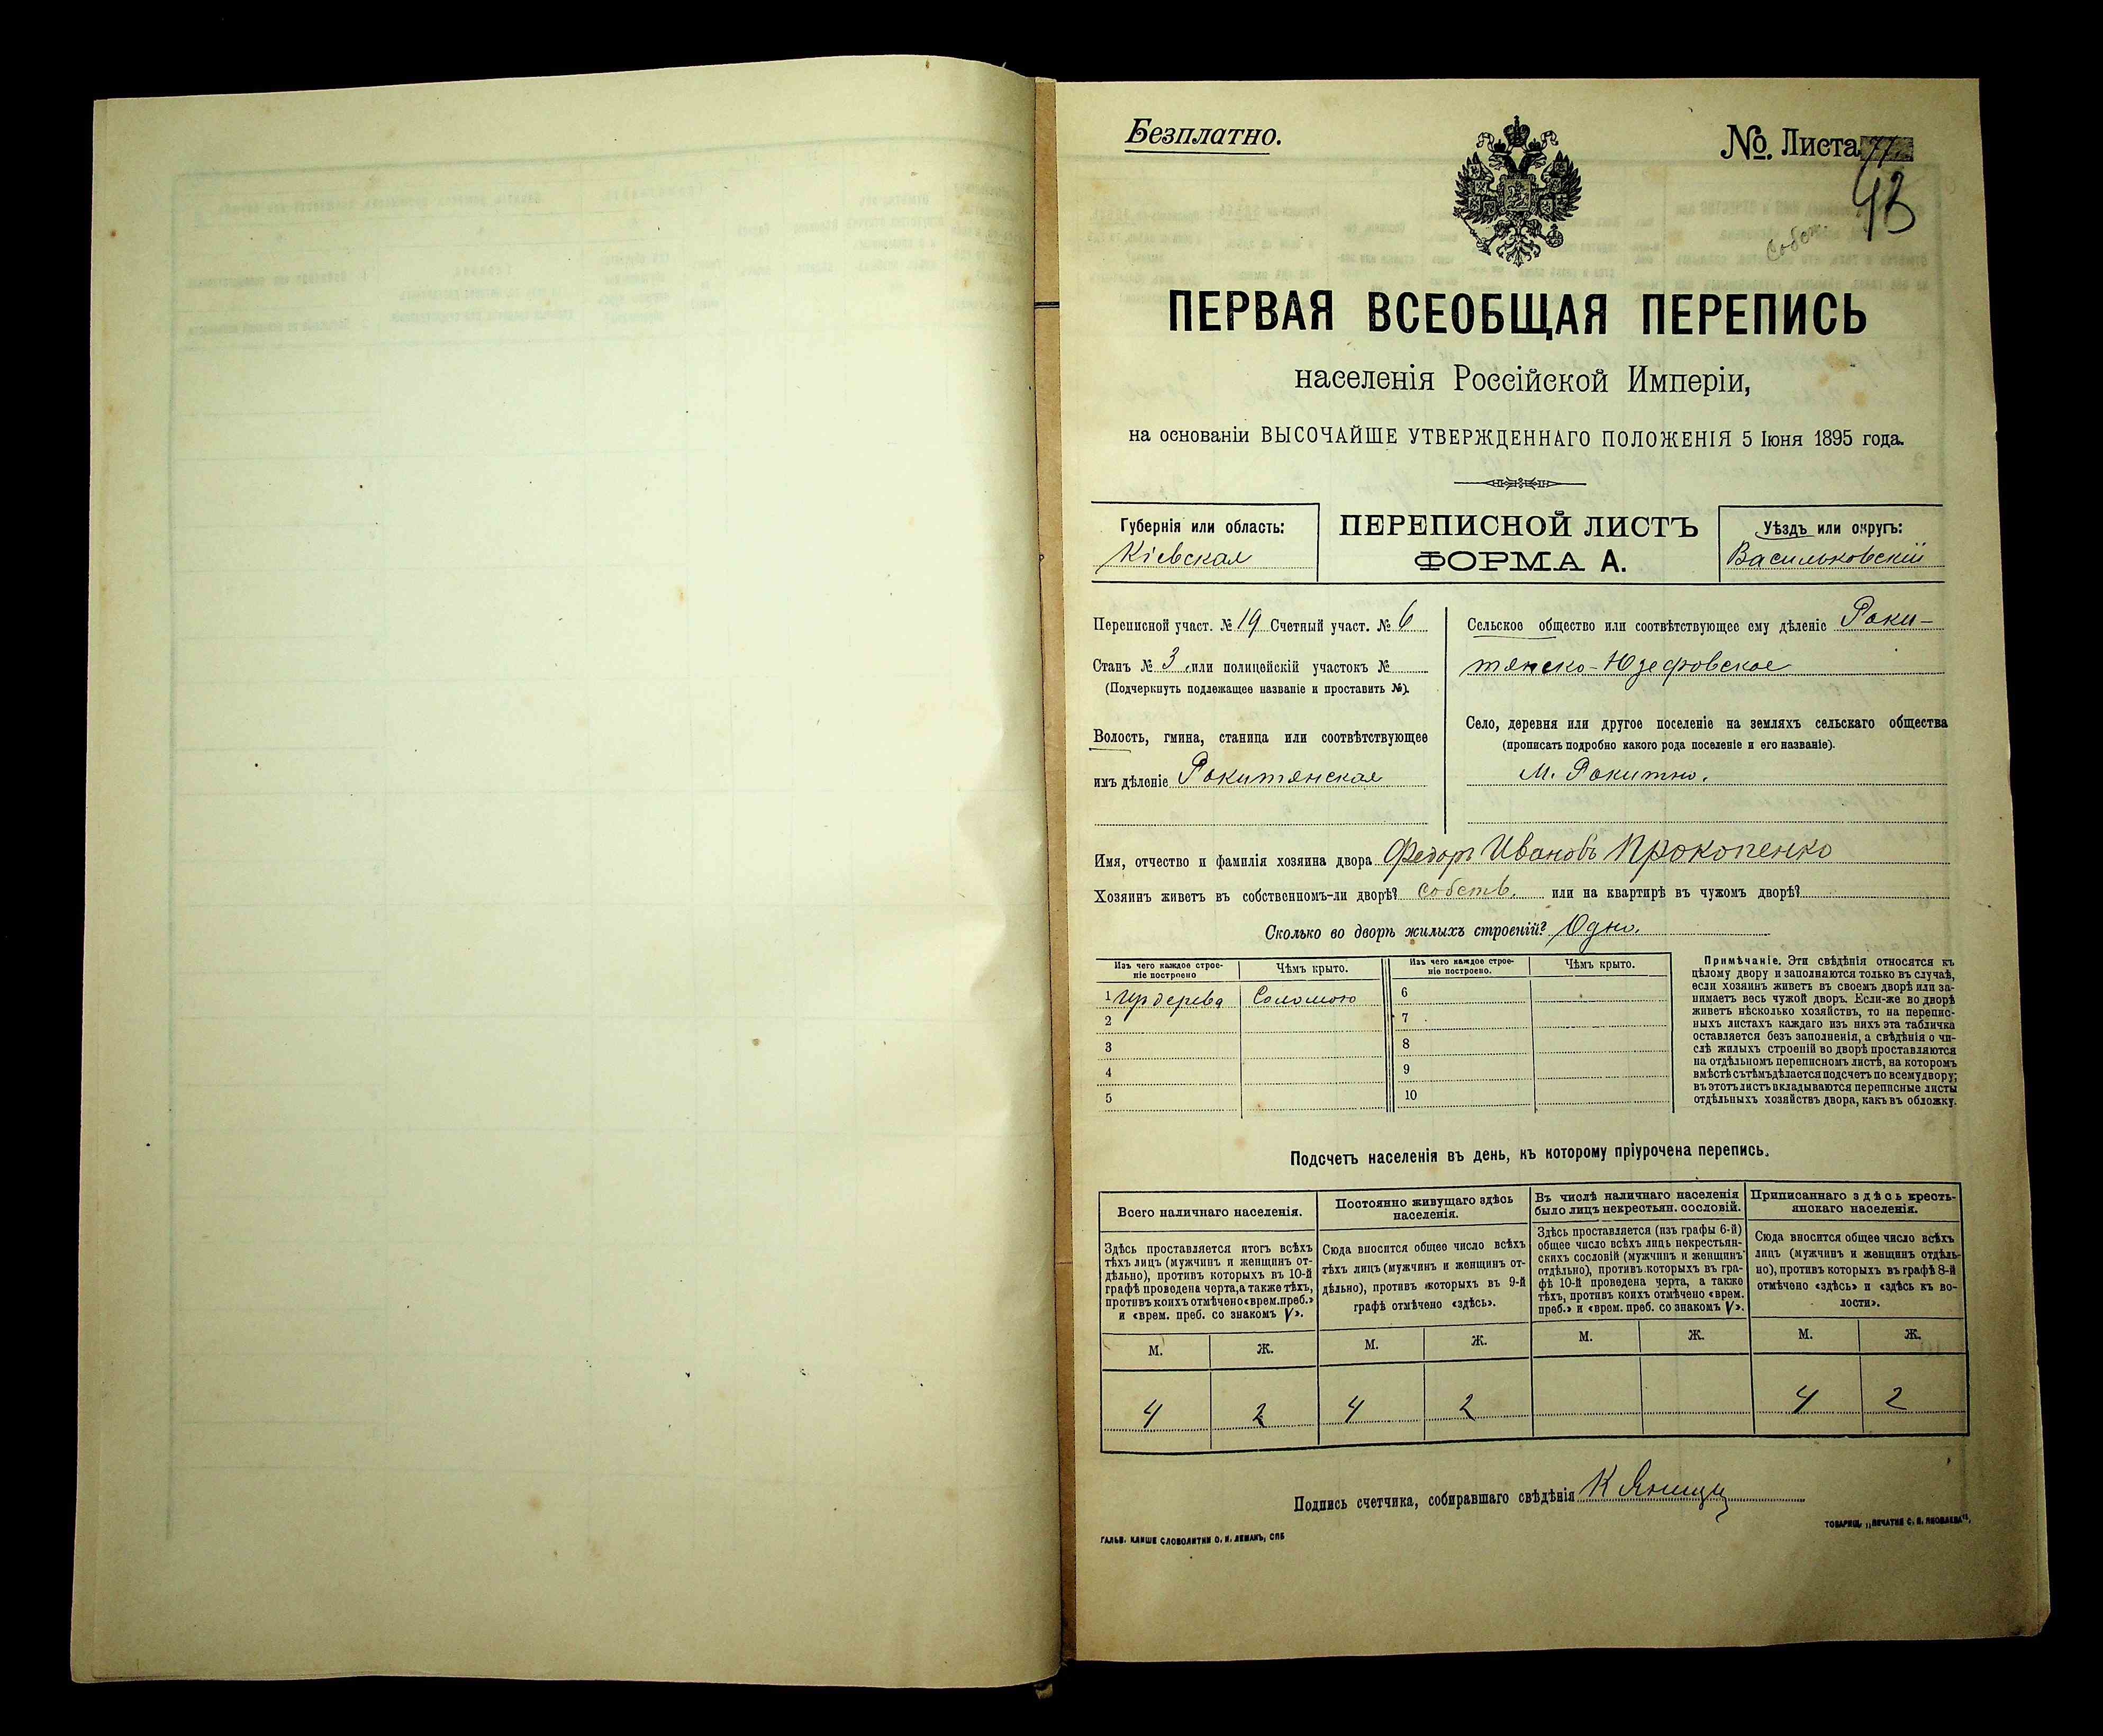 Безплатно.
№. Листа
43
собст.
ПЕРВАЯ ВСЕОБЩАЯ ПЕРЕПИСЬ
населенія Россійской Имперіи,
на основаніи ВЫСОЧАЙШЕ УТВЕРЖДЕННАГО ПОЛОЖЕНІЯ 5 Іюня 1895 года.
Губернія или область:
Кіевская
ПЕРЕПИСНОЙ ЛИСТЪ
ФОРМА А.
Уѣздъ или округъ:
Васильковскій
Переписной участ. № 19 Счетный участ. № 6
Станъ № 3, или полицейскій участокъ №
(Подчеркнуть подлежащее названіе и проставить №).
Волость, гмина, станица или соотвѣтствующее
имъ дѣленіе Рокитянская
Сельское общество или соотвѣтствующее ему дѣленіе Роки-
тянско-Юзефовское
Село, деревня или другое поселеніе на земляхъ сельскаго общества
(прописать подробно какого рода поселеніе и его названіе).
М. Рокитно.
Имя, отчество и фамилія хозяина двора Федоръ Ивановъ Прокопенко
Хозяинъ живетъ въ собственномъ-ли дворѣ? собств. или на квартирѣ въ чужомъ дворѣ?
Сколько во дворѣ жилыхъ строеній? Одно.
Изъ чего каждое строе-
ніе построено
Чѣмъ крыто.
Изъ чего каждое строе-
ніе построено.
Чѣмъ крыто.
1 Изъ дерева Соломою 6
2 7
3 8
4 9
5 10
Примѣчаніе. Эти свѣдѣнія относятся къ
цѣлому двору и заполняются только въ случаѣ,
если хозяинъ живетъ въ своемъ дворѣ или за-
нимаетъ весь чужой дворъ. Если-же во дворѣ
живетъ нѣсколько хозяйствъ, то на перепис-
ныхъ листахъ каждаго изъ нихъ эта табличка
оставляется безъ заполненія, а свѣдѣнія о чи-
слѣ жилыхъ строеній во дворѣ проставляются
на отдѣльномъ переписномъ листѣ, на которомъ
вмѣстѣ съ тѣмъ дѣлается подсчетъ по всему двору;
въ этотъ листъ вкладываются переписные листы
отдѣльныхъ хозяйствъ двора, какъ въ обложку.
Подсчетъ населенія въ день, къ которому пріурочена перепись.
Всего наличнаго населенія.
Постоянно живущаго здѣсь
населенія.
Въ числѣ наличнаго населенія
было лицъ некрестьян. сословій.
Приписаннаго здѣсь кресть-
янскаго населенія.
Здѣсь проставляется итогъ всѣхъ
тѣхъ лицъ (мужчинъ и женщинъ от-
дѣльно), противъ которыхъ въ 10-й
графѣ проведена черта, а также тѣхъ,
противъ коихъ отмѣчено «врем. преб.»
и «врем. преб. со знакомъ V».
Сюда вносится общее число всѣхъ
тѣхъ лицъ (мужчинъ и женщинъ от-
дѣльно), противъ которыхъ въ 9-й
графѣ отмѣчено «здѣсь».
Здѣсь проставляется (изъ графы 6-й)
общее число всѣхъ лицъ некрестьян-
скихъ сословій (мужчинъ и женщинъ
отдѣльно), противъ которыхъ въ гра-
фѣ 10-й проведена черта, а также
тѣхъ, противъ коихъ отмѣчено «врем.
преб.» и «врем. преб. со знакомъ V».
Сюда вносится общее число всѣхъ
лицъ (мужчинъ и женщинъ отдѣль-
но), противъ которыхъ въ графѣ 8-й
отмѣчено «здѣсь» и «здѣсь къ во-
лости».
М. Ж. М. Ж. М. Ж. М. Ж.
4 2 4 2 4 2
Подпись счетчика, собиравшаго свѣдѣнія К
ГАЛЬВ. КЛИШЕ СЛОВОЛИТНИ О. И. ЛЕМАНЪ, СПБ
ТОВАРИЩ. „ПЕЧАТНЯ С. П. ЯКОВЛЕВА".